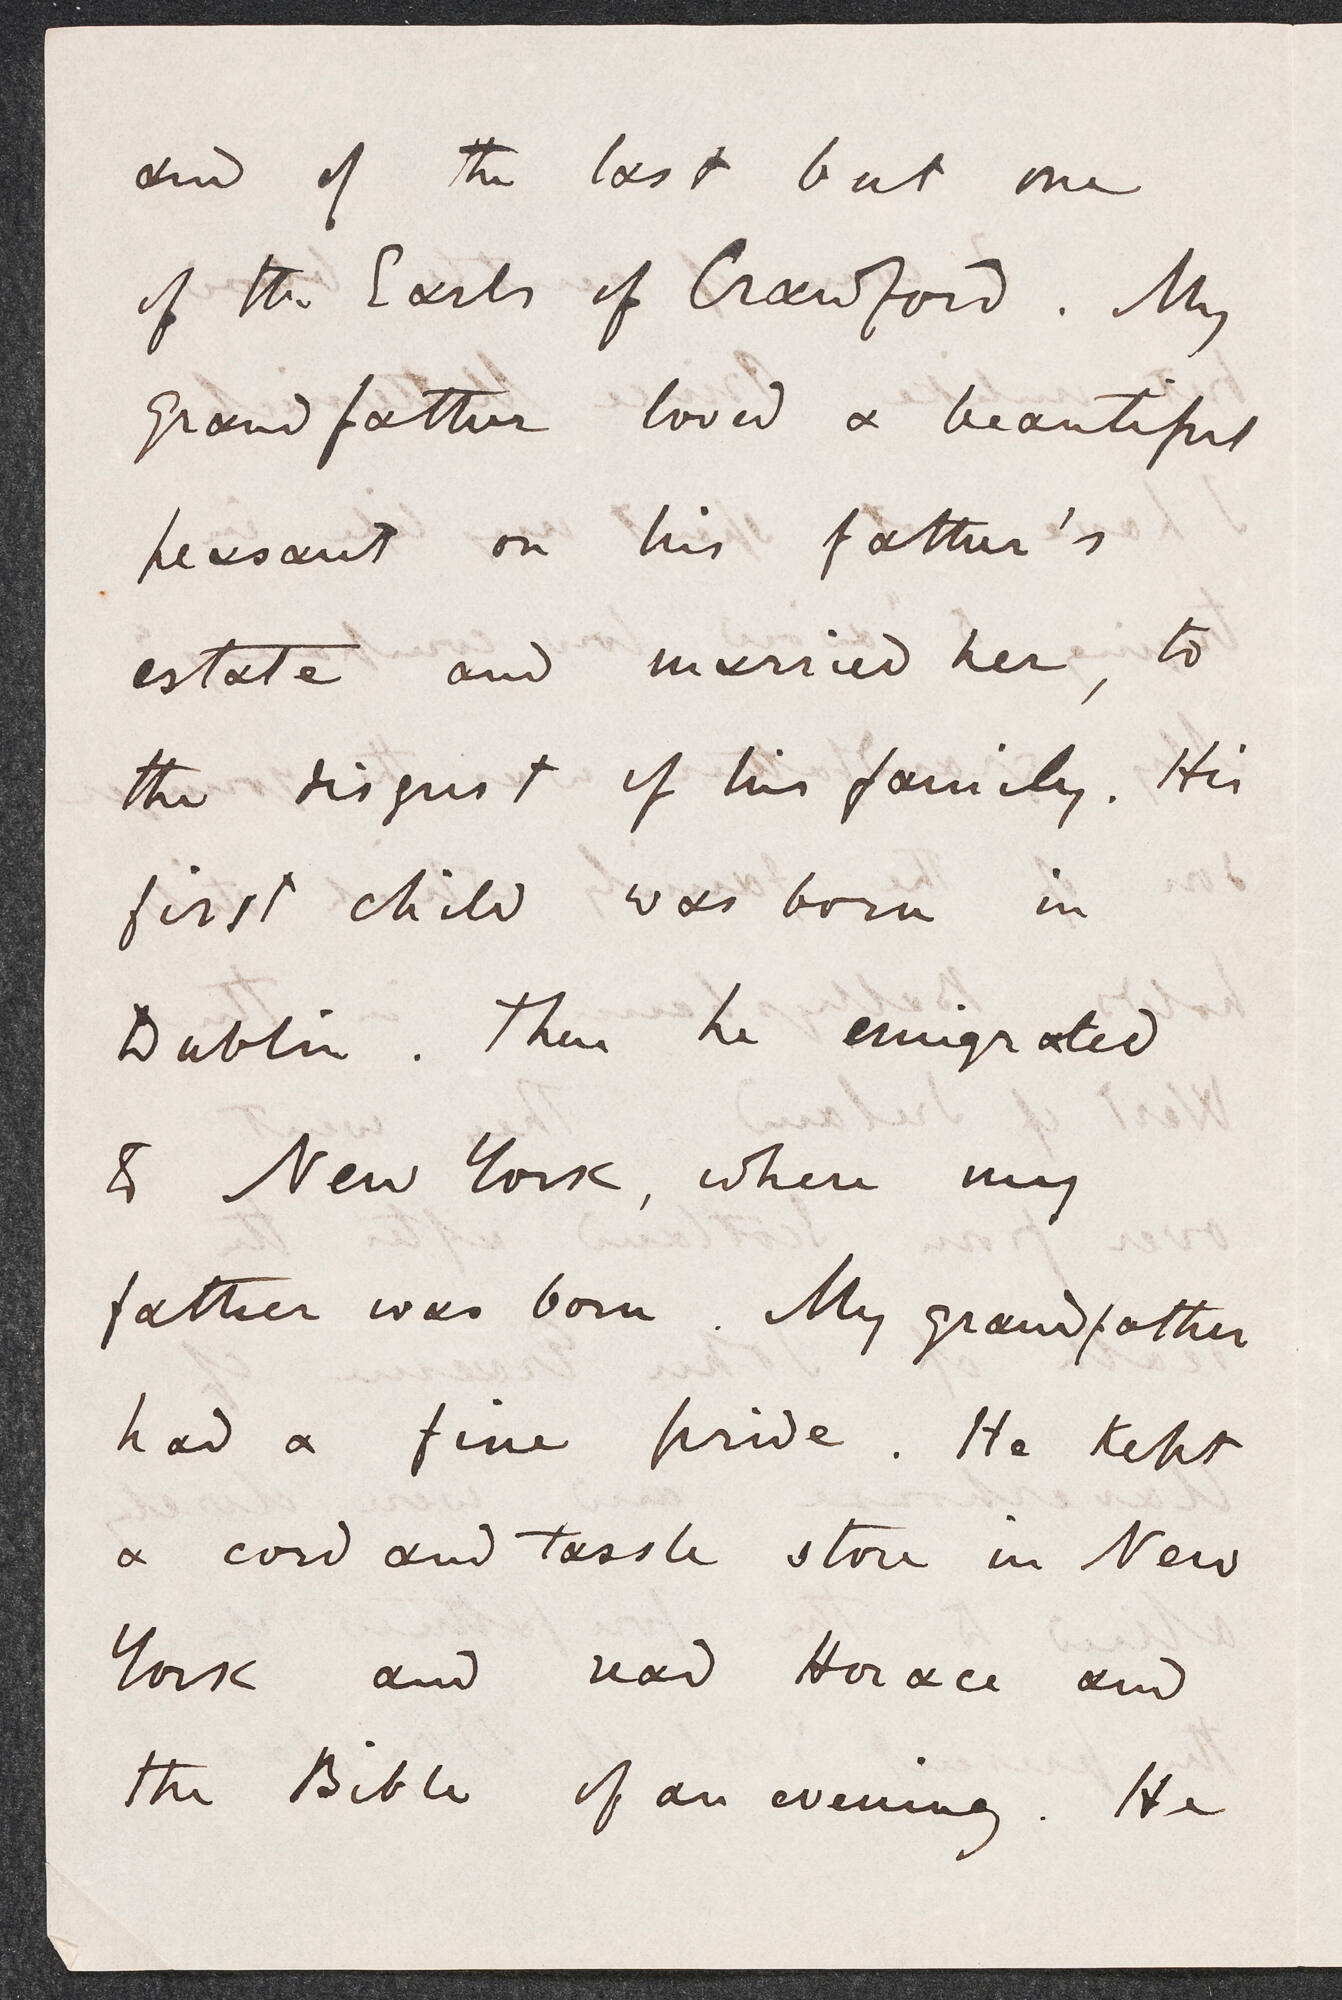 and of the last but one
of the Earls of Crawford. My
grandfather loved a beautiful
peasant on his father's
estate and married her, to
the disgust of his family. His
first child was born in
Dublin. Then he emigrated
to New York, where my
father was born. My grandfather
had a fine pride. He kept
a cord and tassle store in New
York and read Horace and
the Bible of an evening. He